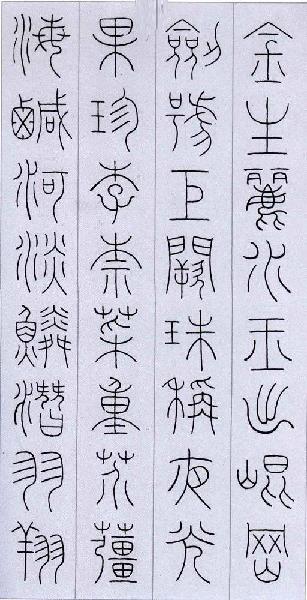 金生麗水玉出崐岡
劍號巨闕珠稱夜光
果珍李柰菜重芥薑
海鹹河淡鱗潛羽翔